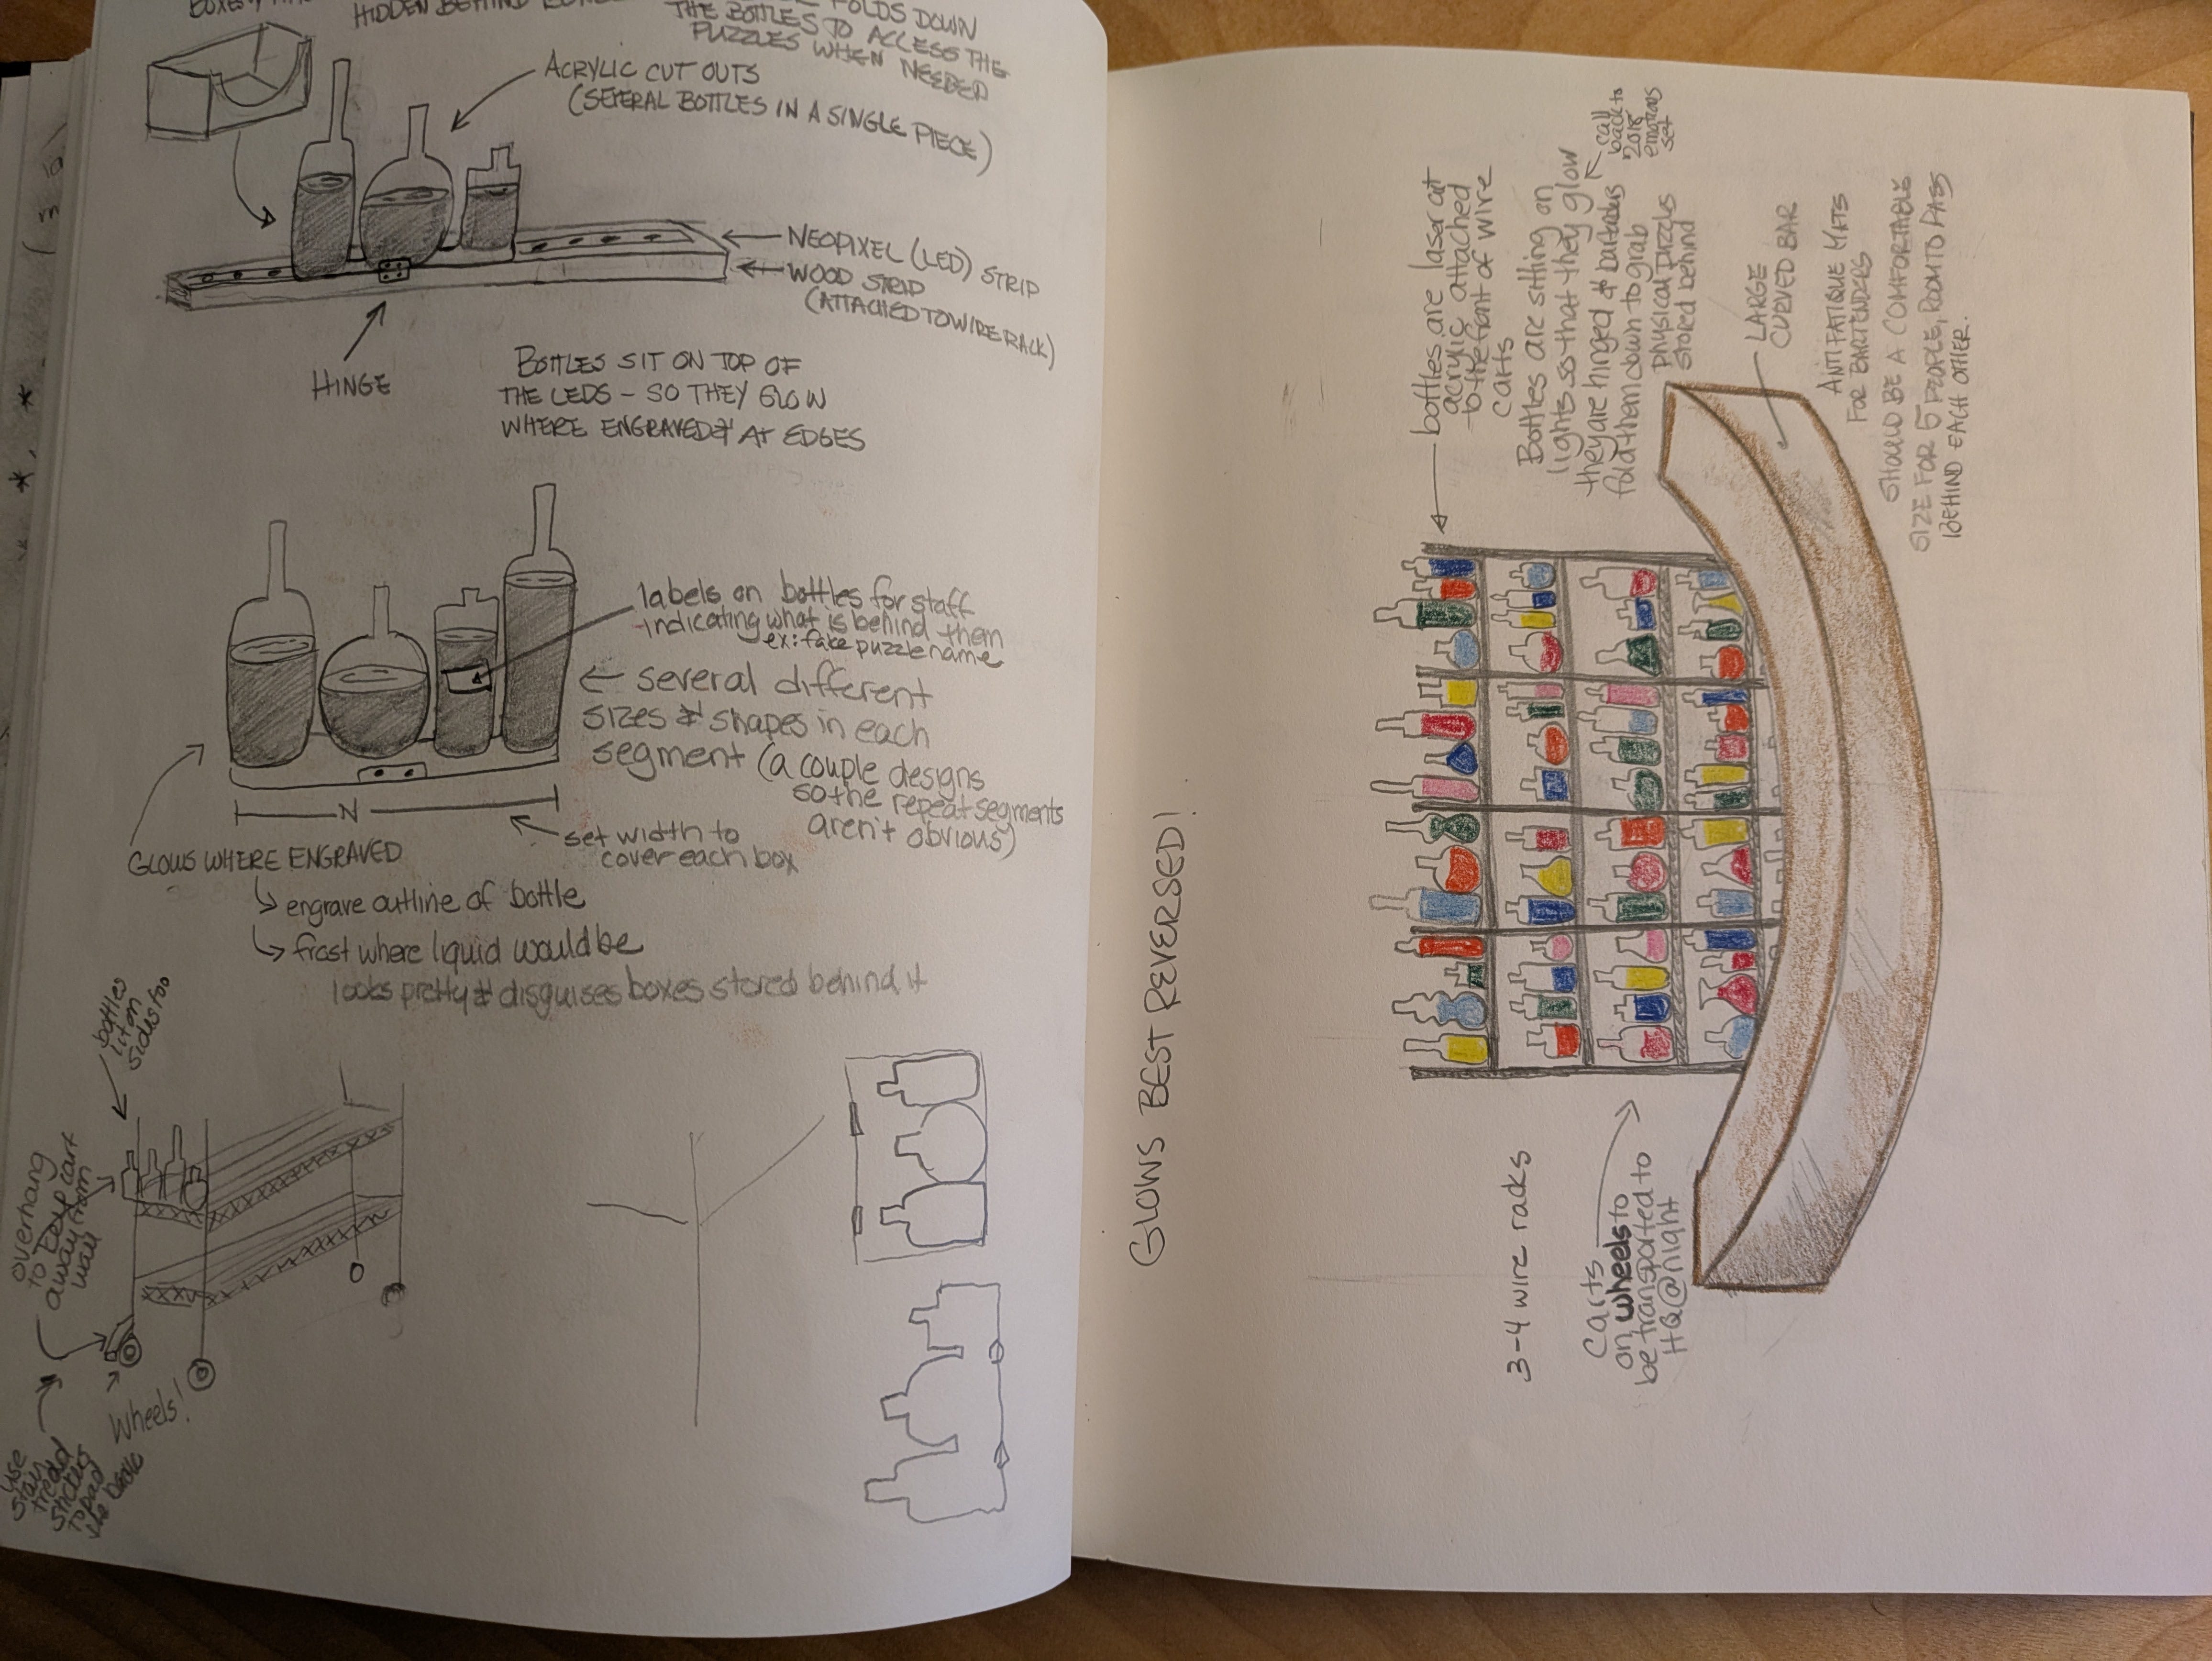 HIDDEN BEHIND
FOLDS DOWN
THE BOTTLES TO ACCESS THE
PUZZLES WHEN NEEDED
ACRYLIC CUT OUTS
(SEVERAL BOTTLES IN A SINGLE PIECE)
NEOPIXEL (LED) STRIP
WOOD STRIP
(ATTACHED TO WIRE RACK)
HINGE
BOTTLES SIT ON TOP OF
THE LEDS - SO THEY GLOW
WHERE ENGRAVED & AT EDGES
labels on bottles for staff
indicating what is behind them
ex: fake puzzle name
several different
sizes & shapes in each
segment (a couple designs
so the repeat segments
aren't obvious)
N
set width to
cover each box
GLOWS WHERE ENGRAVED
engrave outline of bottle
frost where liquid would be
looks pretty & disguises boxes stored behind it
bottles
lit on
sides too
overhang
to keep cart
away from
wall
Wheels!
use
stair
tread
stickers
to pad
the back
GLOWS BEST REVERSED!
bottles are laser cut
acrylic attached
to the front of wire
carts
Bottles are sitting on
lights so that they glow
they are hinged & bartenders
fold them down to grab
physical puzzles
stored behind
call
back to
2018
emotions
set
LARGE
CURVED BAR
ANTI FATIGUE MATS
FOR BARTENDERS
SHOULD BE A COMFORTABLE
SIZE FOR 5 PEOPLE, ROOM TO PASS
BEHIND EACH OTHER.
3-4 wire racks
Carts
on wheels to
be transported to
HQ @ night